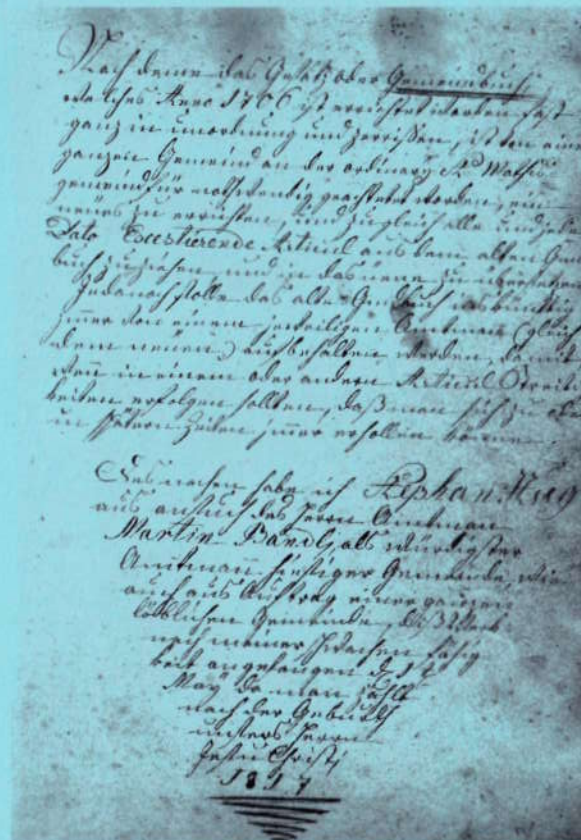 Nach deme das Gesätz oder Gemeindbuch
welches Anno 1706 ist errichtet worden fast
ganz in unordnung und zerrissen, ist von einer
ganzen Gemeind an der ordinary
gemeind für nothwendig geachtet worden, ein
neües zu errichten, und zugleich alle und jede
Dato Exestierende Articul aus dem alten
buch zu ziehen und in das neue zu übersetzen
das alte
jmer von einem jeweiligen Amtman (gleich
dem neüen) aufbehalten werden, damit
wen in einem oder andern Articul Streit
keiten erfolgen sollten, daß man sich zu
in spätern Zeiten jmer erhollen könne
habe ich Stephan Hug
aus ansuch des Herrn Amtman
Martin Bandlj als würdigster
Amtman hiesiger Gemeinde, wie
auch aus Auftrag einer ganzen
löbblichen Gemeinde, diß Werk
nach meiner schwachen fähig
keit angefangen
May da man zählt
nach der Geburth
unsers Herrn
Jesu Christj
1817